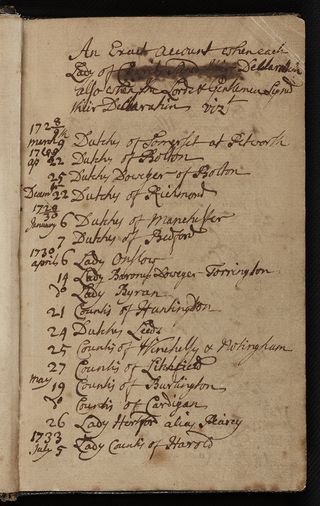 An Exact Account when each
Lady of Declaration
also when the Lords & Gentlemen Sign'd
their Declaration viz.t
172 8/9
March 9 Dutchs of Somerset at Petworth
ap 22 Dutchs of Bolton
25 Dutchs Dowager of Bolton
Decem 22 Dutchs of Richmond
January 6 Dutchs of Manchester
7 Dutchs of Bedford
1730
april 6 Lady Onslow
14 Lady Barones Doweger Torrington
do Lady Byran
21 Countis of Huntington
24 Dutchs Leeds
25 Countis of Winchelly & Notingham
27 Countis of Lichfield
May 19 Countis of Burlington
do Countis of Cardigan
26 Lady Herford alias
1733
July 5 Lady Countis of Harold